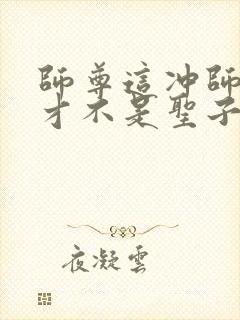 師尊這冲師
才不是聖子
夜凝雲